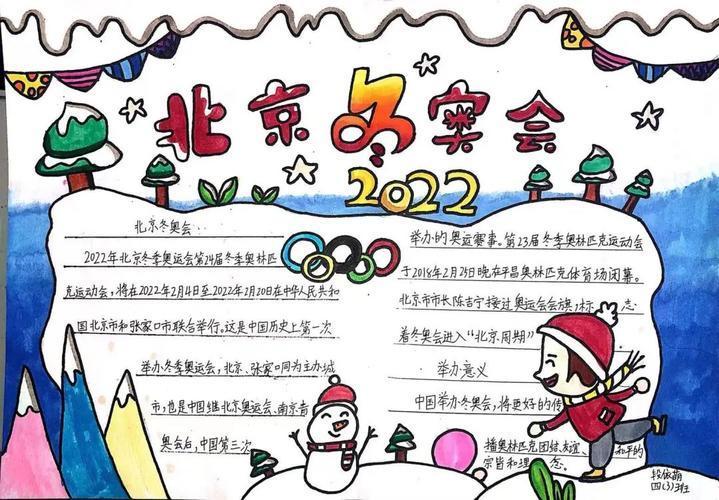 北京冬奥会
2022
北京冬奥会:
2022年北京冬季奥运会第24届冬季奥林匹
克运动会,将在2022年2月4日至2022年2月20日在中华人民共和
国北京市和张家口市联合举行。这是中国历史上第一次
举办冬季奥运会,北京、张家口同为主办城
市,也是中国继北京奥运会、南京青
奥会后,中国第三次
举办的奥运赛事。第23届冬季奥林匹克运动会
于2018年2月25日晚在平昌奥林匹克体育场闭幕。
北京市市长陈吉宁接过奥运会会旗,标 志
着冬奥会进入“北京周期”
举办意义
中国举办冬奥会,将更好的传
播奥林匹克团结、友谊、和平的
宗旨和理 念。
段依萌
四(3)班